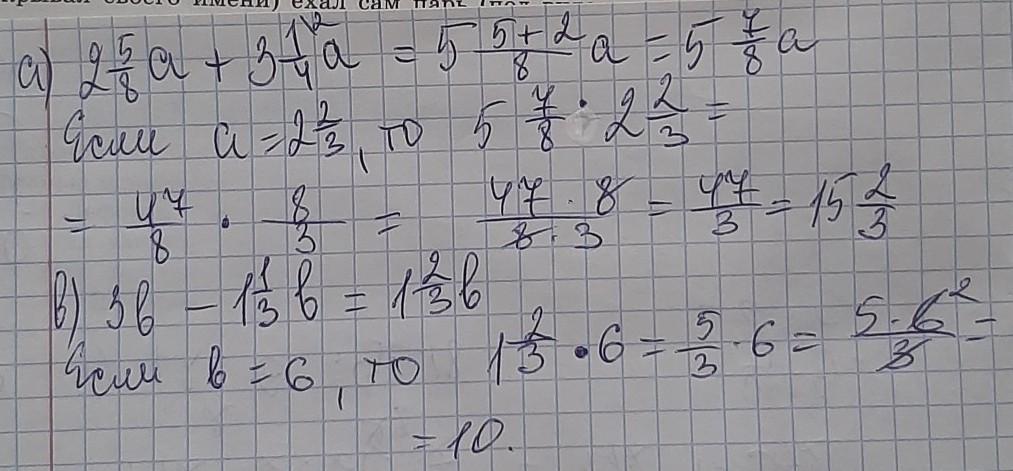 крывал своего имени) ехал сам царь (под
а) 2 5/8 a + 3 1/4 \2 a = 5 (5+2)/8 a = 5 7/8 a
Если a = 2 2/3, то 5 7/8 · 2 2/3 =
= 47/8 · 8/3 = (47 · 8)/(8 · 3) = 47/3 = 15 2/3
в) 3b - 1 1/3 b = 1 2/3 b
Если b = 6, то 1 2/3 · 6 = 5/3 · 6 = (5 · 6 2)/3 =
= 10.